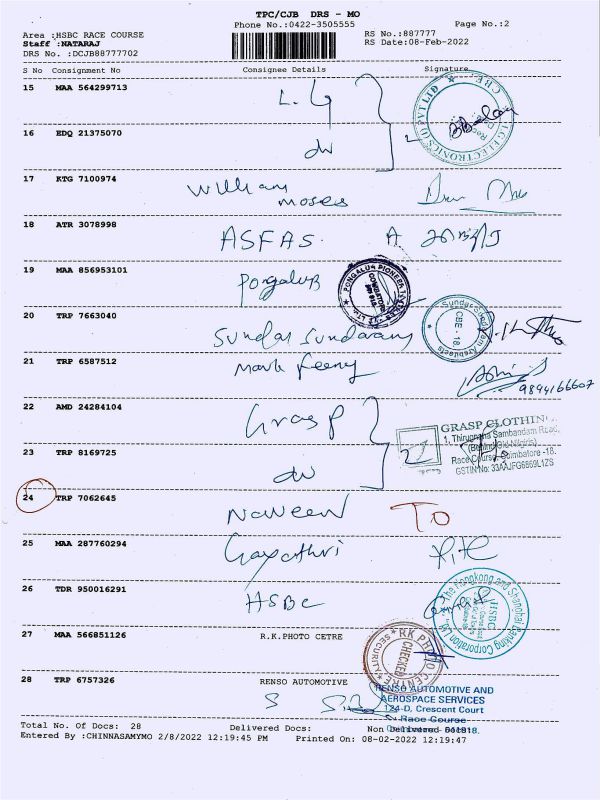 TPC/CJB DRS - MO
Phone No.:0422-3505555
Page No.:2
Area :HSBC RACE COURSE
RS No.:887777
Staff :NATARAJ
RS Date:08-Feb-2022
DRS No. :DCJB88777702
S No Consignment No Consignee Details Signature
15 MAA 564299713 L.G
16 EDQ 21375070 do
17 KTG 7100974 William Moses
18 ATR 3078998 ASFAS. A
19 MAA 856953101 Pongalur
PONGALUR PIONEER
COIMBATORE
20 TRP 7663040 Sundar Sundaram
Sundar Sundaram Architects
CBE - 18.
21 TRP 6587512 Mark Feeny
9894166607
22 AMD 24284104 Grasp
GRASP CLOTHIN
1, Thirugnana Sambandam Road,
(Behind Old Nilgiris)
Race Course, Coimbatore -18.
GSTIN No: 33AAJFG6869L1ZS
23 TRP 8169725 do
24 TRP 7062645 Naveen TO
25 MAA 287760294 Gayathri
26 TDR 950016291 HSBC
The Hongkong and Shanghai Banking Corporation Ltd
HSBC
27 MAA 566851126 R.K.PHOTO CETRE
RK PHOTO CENTRE
CHECKED
SECURITY
28 TRP 6757326 RENSO AUTOMOTIVE
RENSO AUTOMOTIVE AND
AEROSPACE SERVICES
124-D, Crescent Court
Race Course
Total No. Of Docs: 28 Delivered Docs: Non Delivered Docs:
Entered By :CHINNASAMYMO 2/8/2022 12:19:45 PM Printed On: 08-02-2022 12:19:47